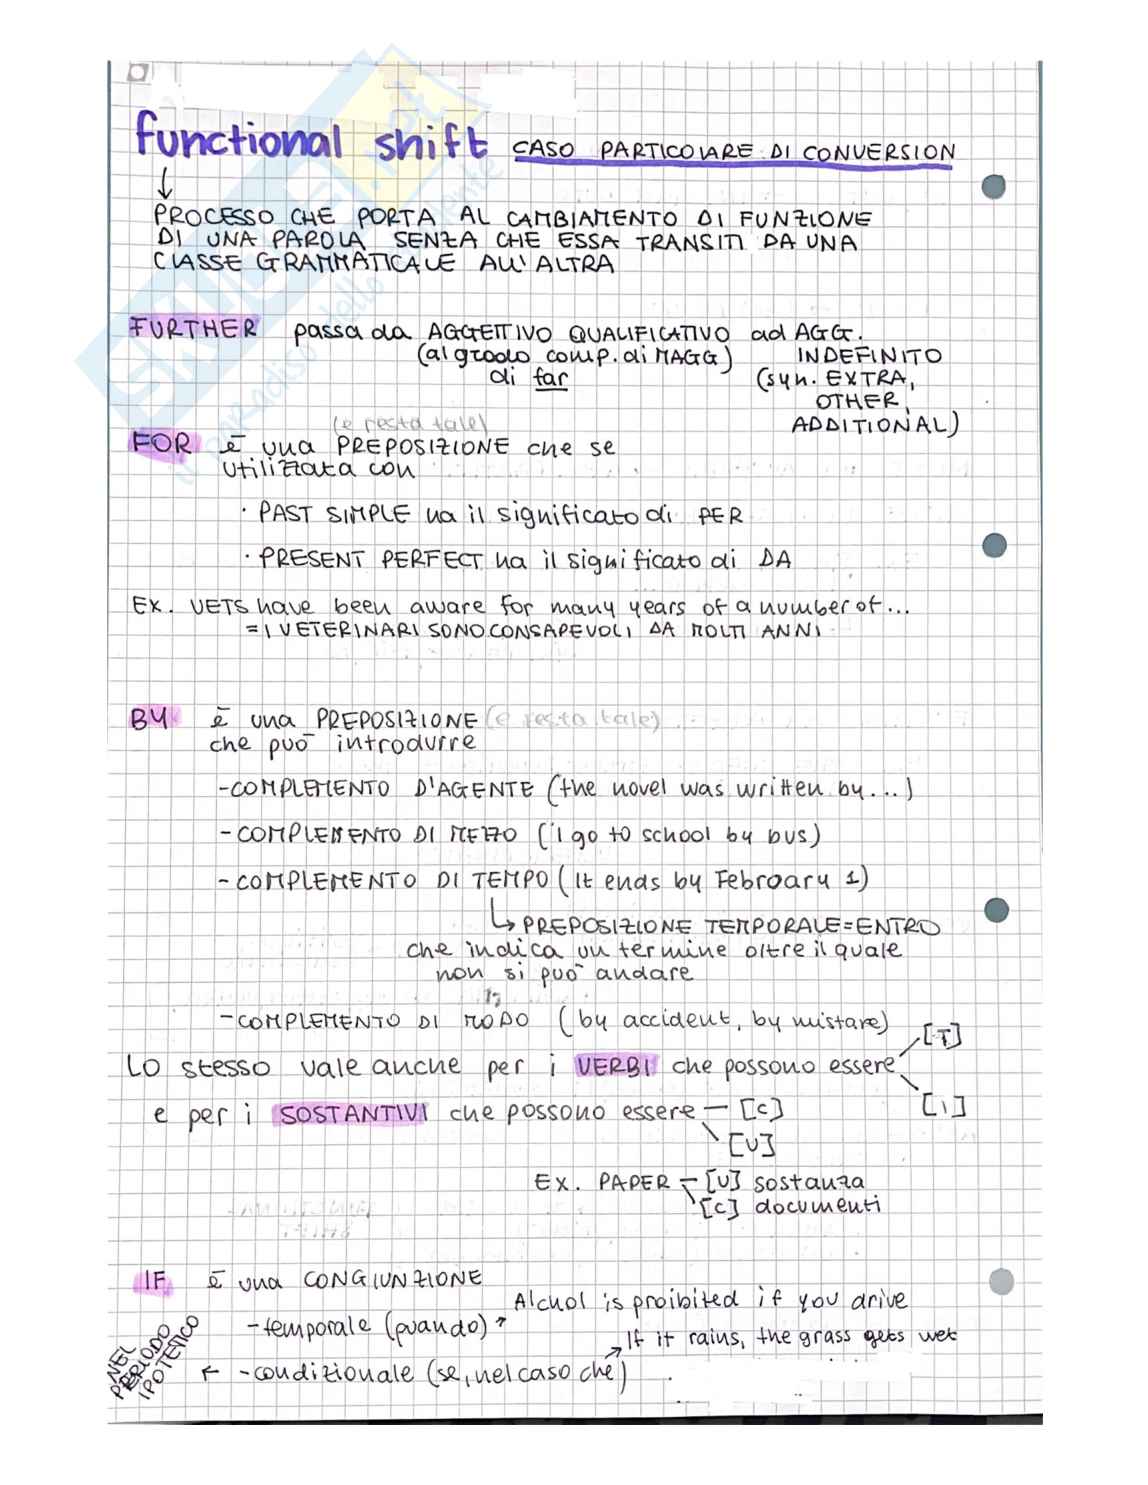 functional shift CASO PARTICOLARE DI CONVERSION
↓
PROCESSO CHE PORTA AL CAMBIAMENTO DI FUNZIONE
DI UNA PAROLA SENZA CHE ESSA TRANSITI DA UNA
CLASSE GRAMMATICALE ALL'ALTRA
FURTHER passa da AGGETTIVO QUALIFICATIVO ad AGG.
(al grado comp. di MAGG) INDEFINITO
di far (syn. EXTRA,
OTHER,
ADDITIONAL)
(e resta tale)
FOR è una PREPOSIZIONE che se
utilizzata con
· PAST SIMPLE ha il significato di PER
· PRESENT PERFECT ha il significato di DA
EX. VETS have been aware for many years of a number of...
= I VETERINARI SONO CONSAPEVOLI DA MOLTI ANNI
BY è una PREPOSIZIONE (e resta tale)
che può introdurre
- COMPLEMENTO D'AGENTE (the novel was written by...)
- COMPLEMENTO DI MEZZO (i go to school by bus)
- COMPLEMENTO DI TEMPO (It ends by Febroary 1)
↳ PREPOSIZIONE TEMPORALE = ENTRO
che indica un termine oltre il quale
non si può andare
- COMPLEMENTO DI MODO (by accident, by mistare)
[T]
Lo stesso vale anche per i VERBI che possono essere
[I]
e per i SOSTANTIVI che possono essere — [C]
[U]
EX. PAPER — [U] sostanza
[C] documenti
IF è una CONGIUNZIONE
Alchol is proibited if you drive
- temporale (quando) ↗
If it rains, the grass gets wet
NEL PERIODO IPOTETICO ← - condizionale (se, nel caso che) ↗
SKUOLA.net
il paradiso dello studente